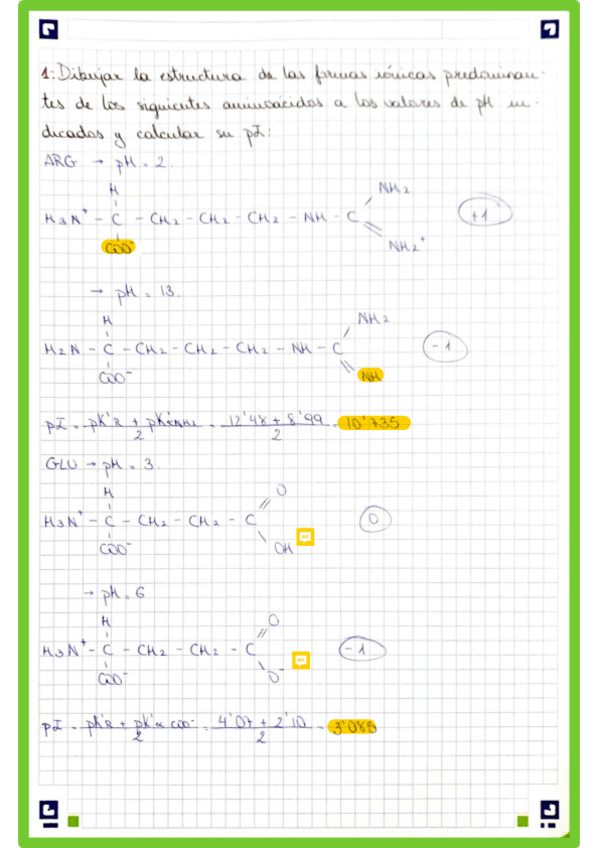 1: Dibujar la estructura de las formas iónicas predominan-
tes de los siguientes aminoácidos a los valores de pH in-
dicados y calcular su pI:
ARG → pH = 2.
H
NH2
H3N+ - C - CH2 - CH2 - CH2 - NH - C
+1
COO-
NH2+
→ pH = 13.
H
NH2
H2N - C - CH2 - CH2 - CH2 - NH - C
-1
COO-
NH
pI = pK'R + pK'αNH2 / 2 = 12'48 + 8'99 / 2 = 10'735
GLU → pH = 3.
H
O
H3N+ - C - CH2 - CH2 - C
0
COO-
OH
→ pH = 6
H
O
H3N+ - C - CH2 - CH2 - C
-1
COO-
O-
pI = pK'R + pK'α COO- / 2 = 4'07 + 2'10 / 2 = 3'085